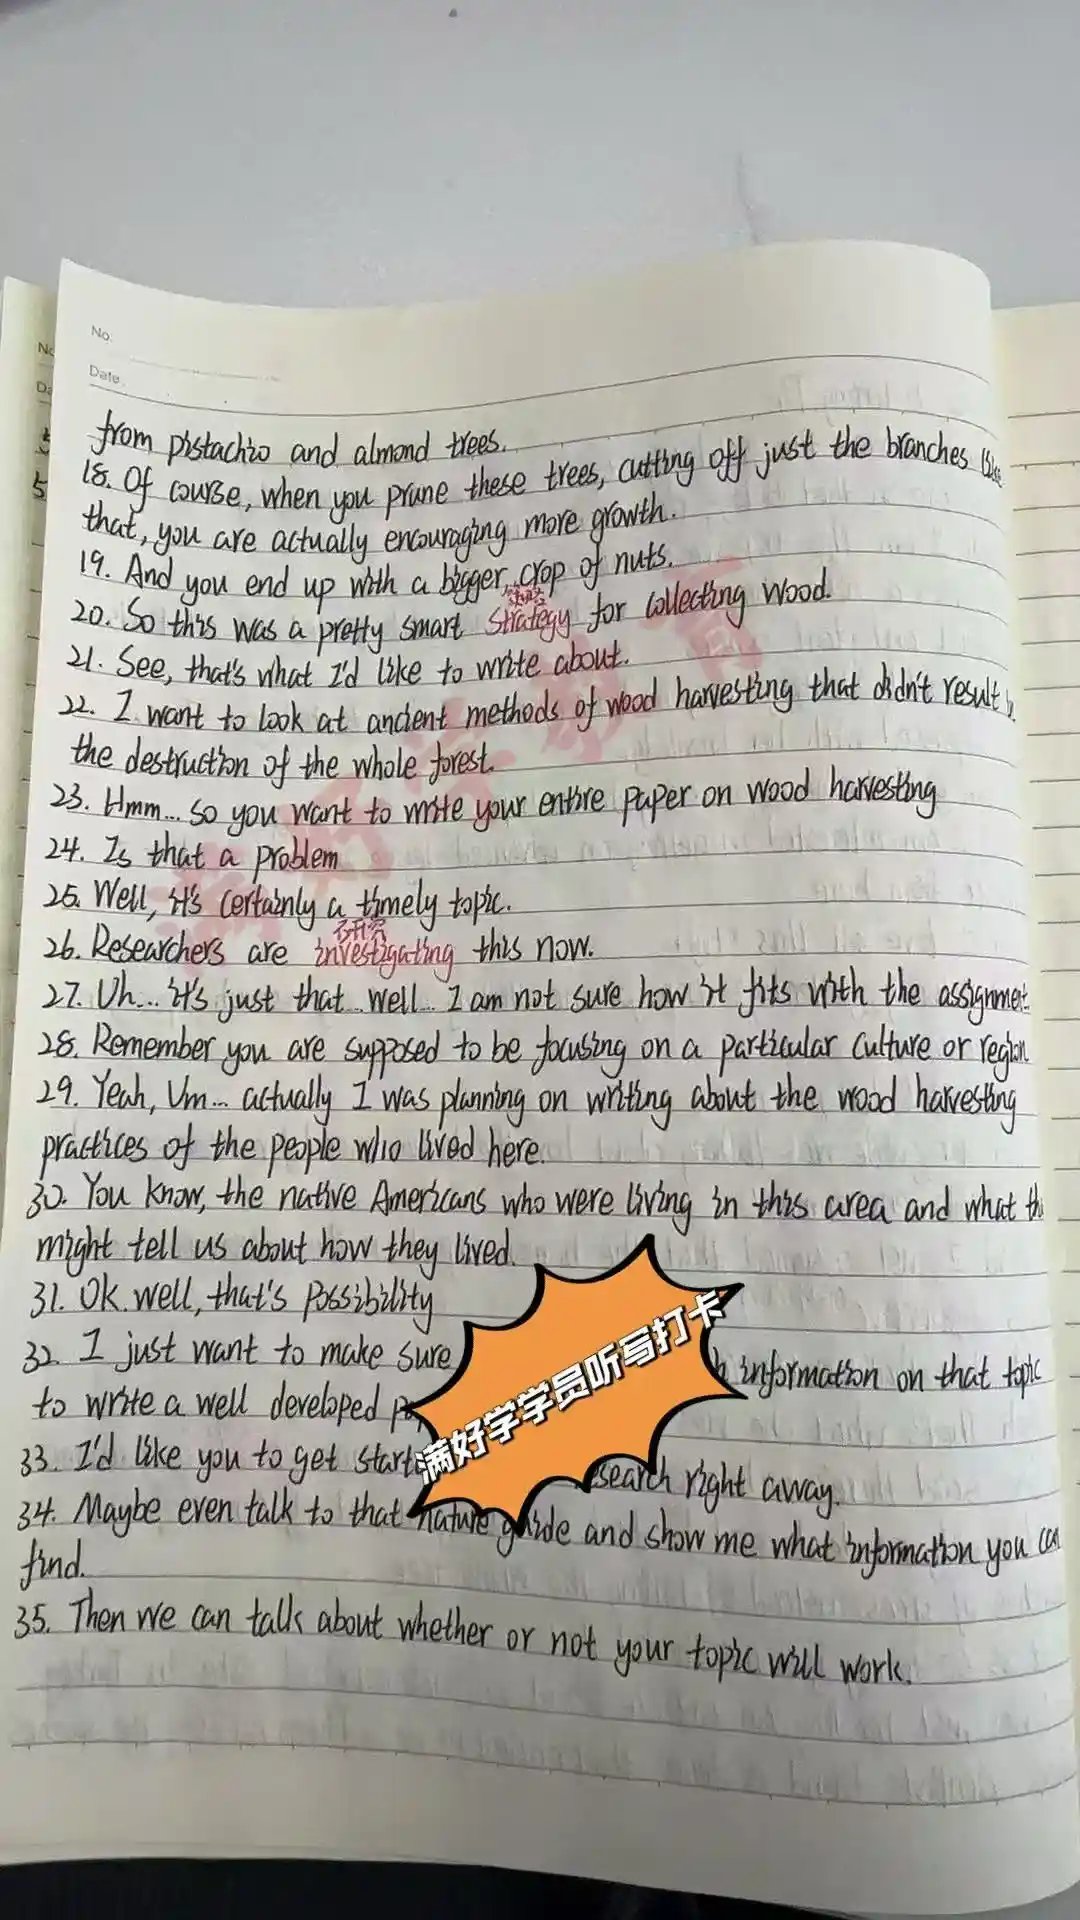 No.
Date.
from pistachio and almond trees.
18. Of course, when you prune these trees, cutting off just the branches like
that, you are actually encouraging more growth.
19. And you end up with a bigger crop of nuts.
策略
20. So this was a pretty smart strategy for collecting wood.
21. See, that's what I'd like to write about.
22. I want to look at ancient methods of wood harvesting that didn't result in
the destruction of the whole forest.
23. Hmm... so you want to write your entire paper on wood harvesting
24. Is that a problem
25. Well, it's certainly a timely topic.
研究
26. Researchers are investigating this now.
27. Uh... it's just that.. well... I am not sure how it fits with the assignment
28. Remember you are supposed to be focusing on a particular culture or region
29. Yeah, Um... actually I was planning on writing about the wood harvesting
practices of the people who lived here.
30. You know, the native Americans who were living in this area and what
might tell us about how they lived.
31. Ok. well, that's possibility
32. I just want to make sure information on that topic
to write a well developed
33. I'd like you to get right away.
34. Maybe even talk to that nature guide and show me what information you can
find.
35. Then we can talk about whether or not your topic will work.
满好学学员听写打卡